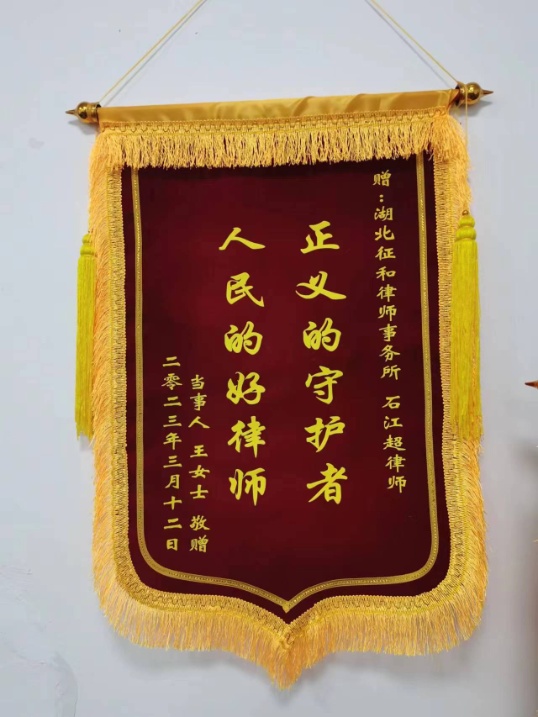 赠：湖北征和律师事务所 石江超律师
正义的守护者
人民的好律师
当事人 王女士 敬赠
二零二三年三月十二日